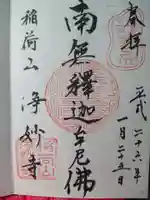 奉拝
平成二十六年
一月二十五日
南無釋迦牟尼佛
稲荷山
海妙寺